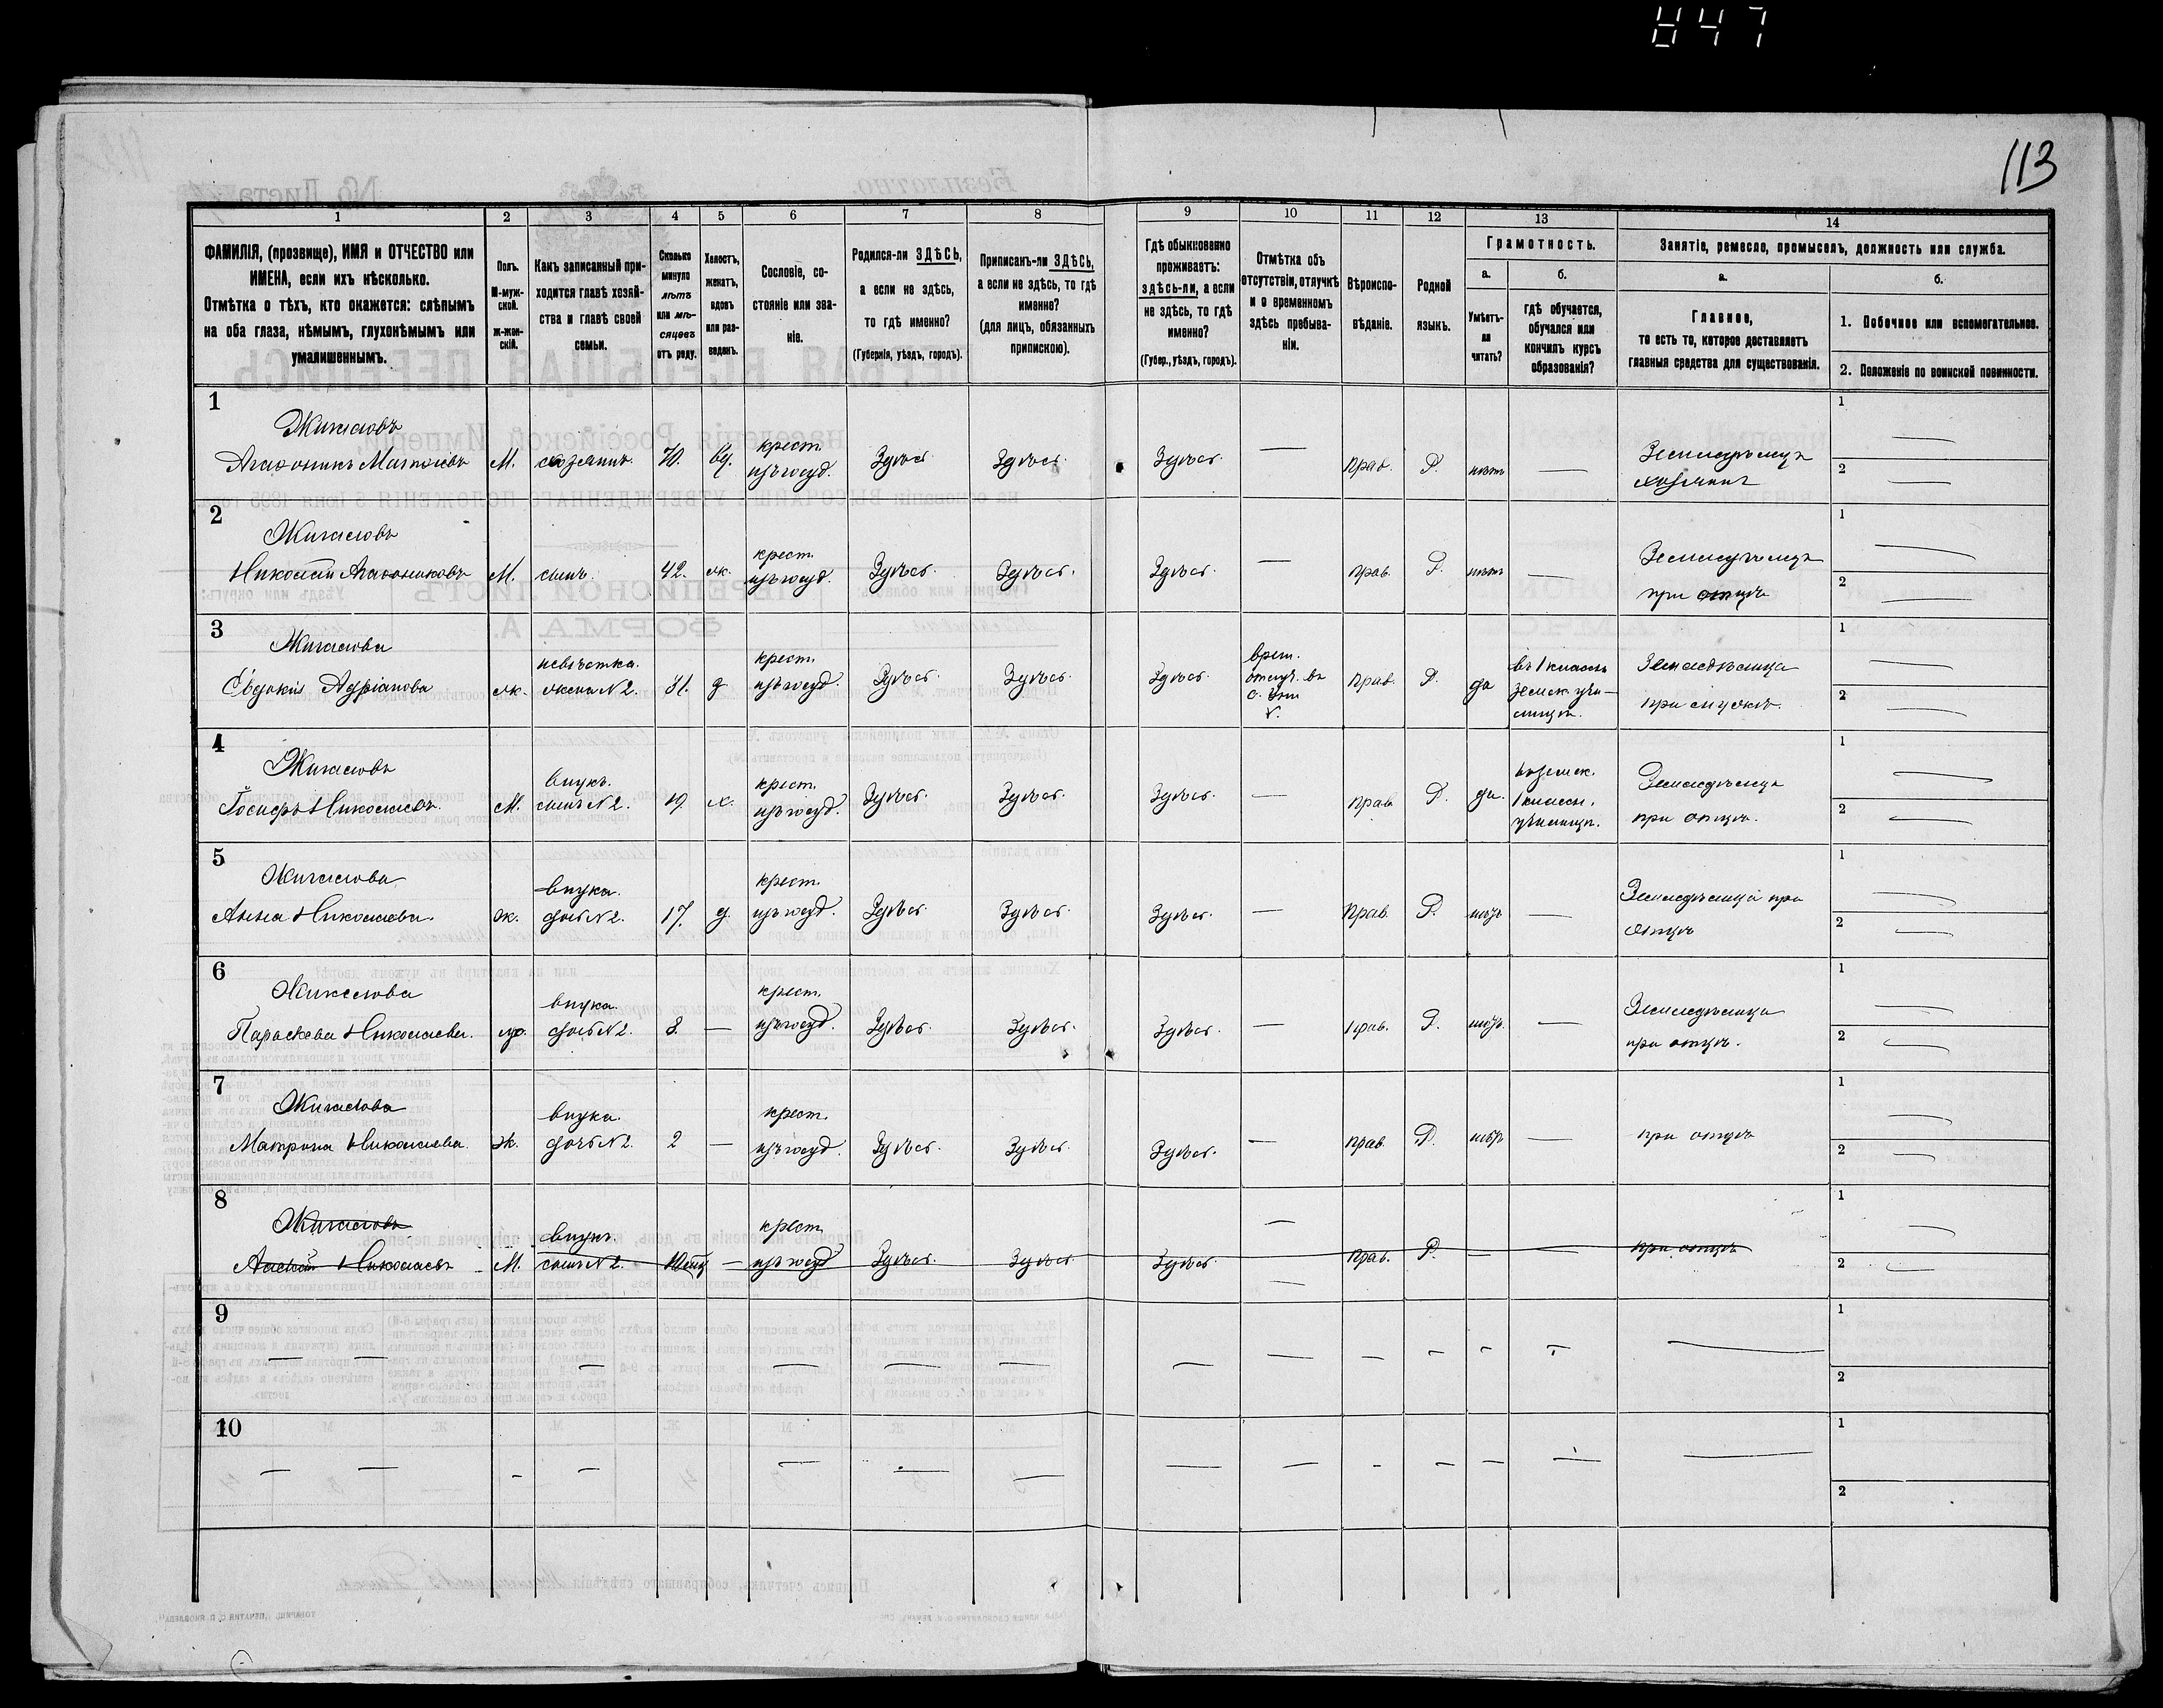 847
113
1 2 3 4 5 6 7 8 9 10 11 12 13 14
ФАМИЛІЯ, (прозвище), ИМЯ и ОТЧЕСТВО или ИМЕНА, если ихъ нѣсколько.
Отмѣтка о тѣхъ, кто окажется: слѣпымъ на оба глаза, нѣмымъ, глухонѣмымъ или умалишеннымъ.
Полъ. М-мужской. ж-женскій.
Какъ записанный приходится главѣ хозяйства и главѣ своей семьи.
Сколько минуло лѣтъ или мѣсяцевъ отъ роду.
Холостъ, женатъ, вдовъ или разведенъ.
Сословіе, состояніе или званіе.
Родился-ли ЗДѢСЬ, а если не здѣсь, то гдѣ именно?
(Губернія, уѣздъ, городъ).
Приписанъ-ли ЗДѢСЬ, а если не здѣсь, то гдѣ именно?
(для лицъ, обязанныхъ припискою).
Гдѣ обыкновенно проживаетъ: здѣсь-ли, а если не здѣсь, то гдѣ именно?
(Губер., уѣздъ, городъ).
Отмѣтка объ отсутствіи, отлучкѣ и о временномъ здѣсь пребываніи.
Вѣроисповѣданіе.
Родной языкъ.
Грамотность.
а. Умѣетъ-ли читать?
б. гдѣ обучается, обучался или кончилъ курсъ образованія?
Занятіе, ремесло, промыселъ, должность или служба.
а. Главное, то есть то, которое доставляетъ главныя средства для существованія.
б.
1. Побочное или вспомогательное.
2. Положеніе по воинской повинности.
1
Жигаловъ крест. Земледѣлецъ 1 —
Агафоникъ М. хозяинъ. 70. вд. изъ госуд. Здѣсь Здѣсь Здѣсь — прав. Р. нѣтъ — хозяинъ 2 —
2
Жигаловъ крест. Земледѣлецъ 1 —
Николай Агафониковъ М. сынъ. 42. ж. изъ госуд. Здѣсь Здѣсь Здѣсь — прав. Р. нѣтъ — при отцѣ 2 —
3
Жигалова невѣстка. крест. врем. отлуч. въ въ 1 классн. земск. училищѣ. Земледѣлица 1 —
Евдокія Адріанова ж. жена N 2. изъ госуд. Здѣсь Здѣсь Здѣсь прав. Р. да при мужѣ 2 —
4
Жигаловъ внукъ. крест. въ земск. 1 классн. училищѣ. Земледѣлецъ 1 —
Іосифъ Николаевъ М. сынъ N 2. 19. х. изъ госуд. Здѣсь Здѣсь Здѣсь — прав. Р. да. при отцѣ. 2 —
5
Жигалова внука. крест. Земледѣлица при отцѣ 1 —
Анна Николаева ж. дочь N 2. 17. д. изъ госуд. Здѣсь Здѣсь Здѣсь — прав. Р. — 2 —
6
Жигалова внука. крест. Земледѣлица 1 —
Параскева Николаева. ж. дочь N 2. 8. — изъ госуд. Здѣсь Здѣсь Здѣсь — прав. Р. — при отцѣ. 2 —
7
Жигалова внука. крест. 1 —
Матрона Николаева ж. дочь N 2. 2 — изъ госуд. Здѣсь Здѣсь Здѣсь — прав. Р. — при отцѣ 2 —
8
Жигаловъ внукъ. крест. — 1 —
Николаевъ М. сынъ N 2. — изъ госуд Здѣсь Здѣсь Здѣсь — прав. Р. — — при отцѣ 2 —
9
— — — — — — — — — — — — — 1
2
10
— — — — — — — — — — — — — — 1
2